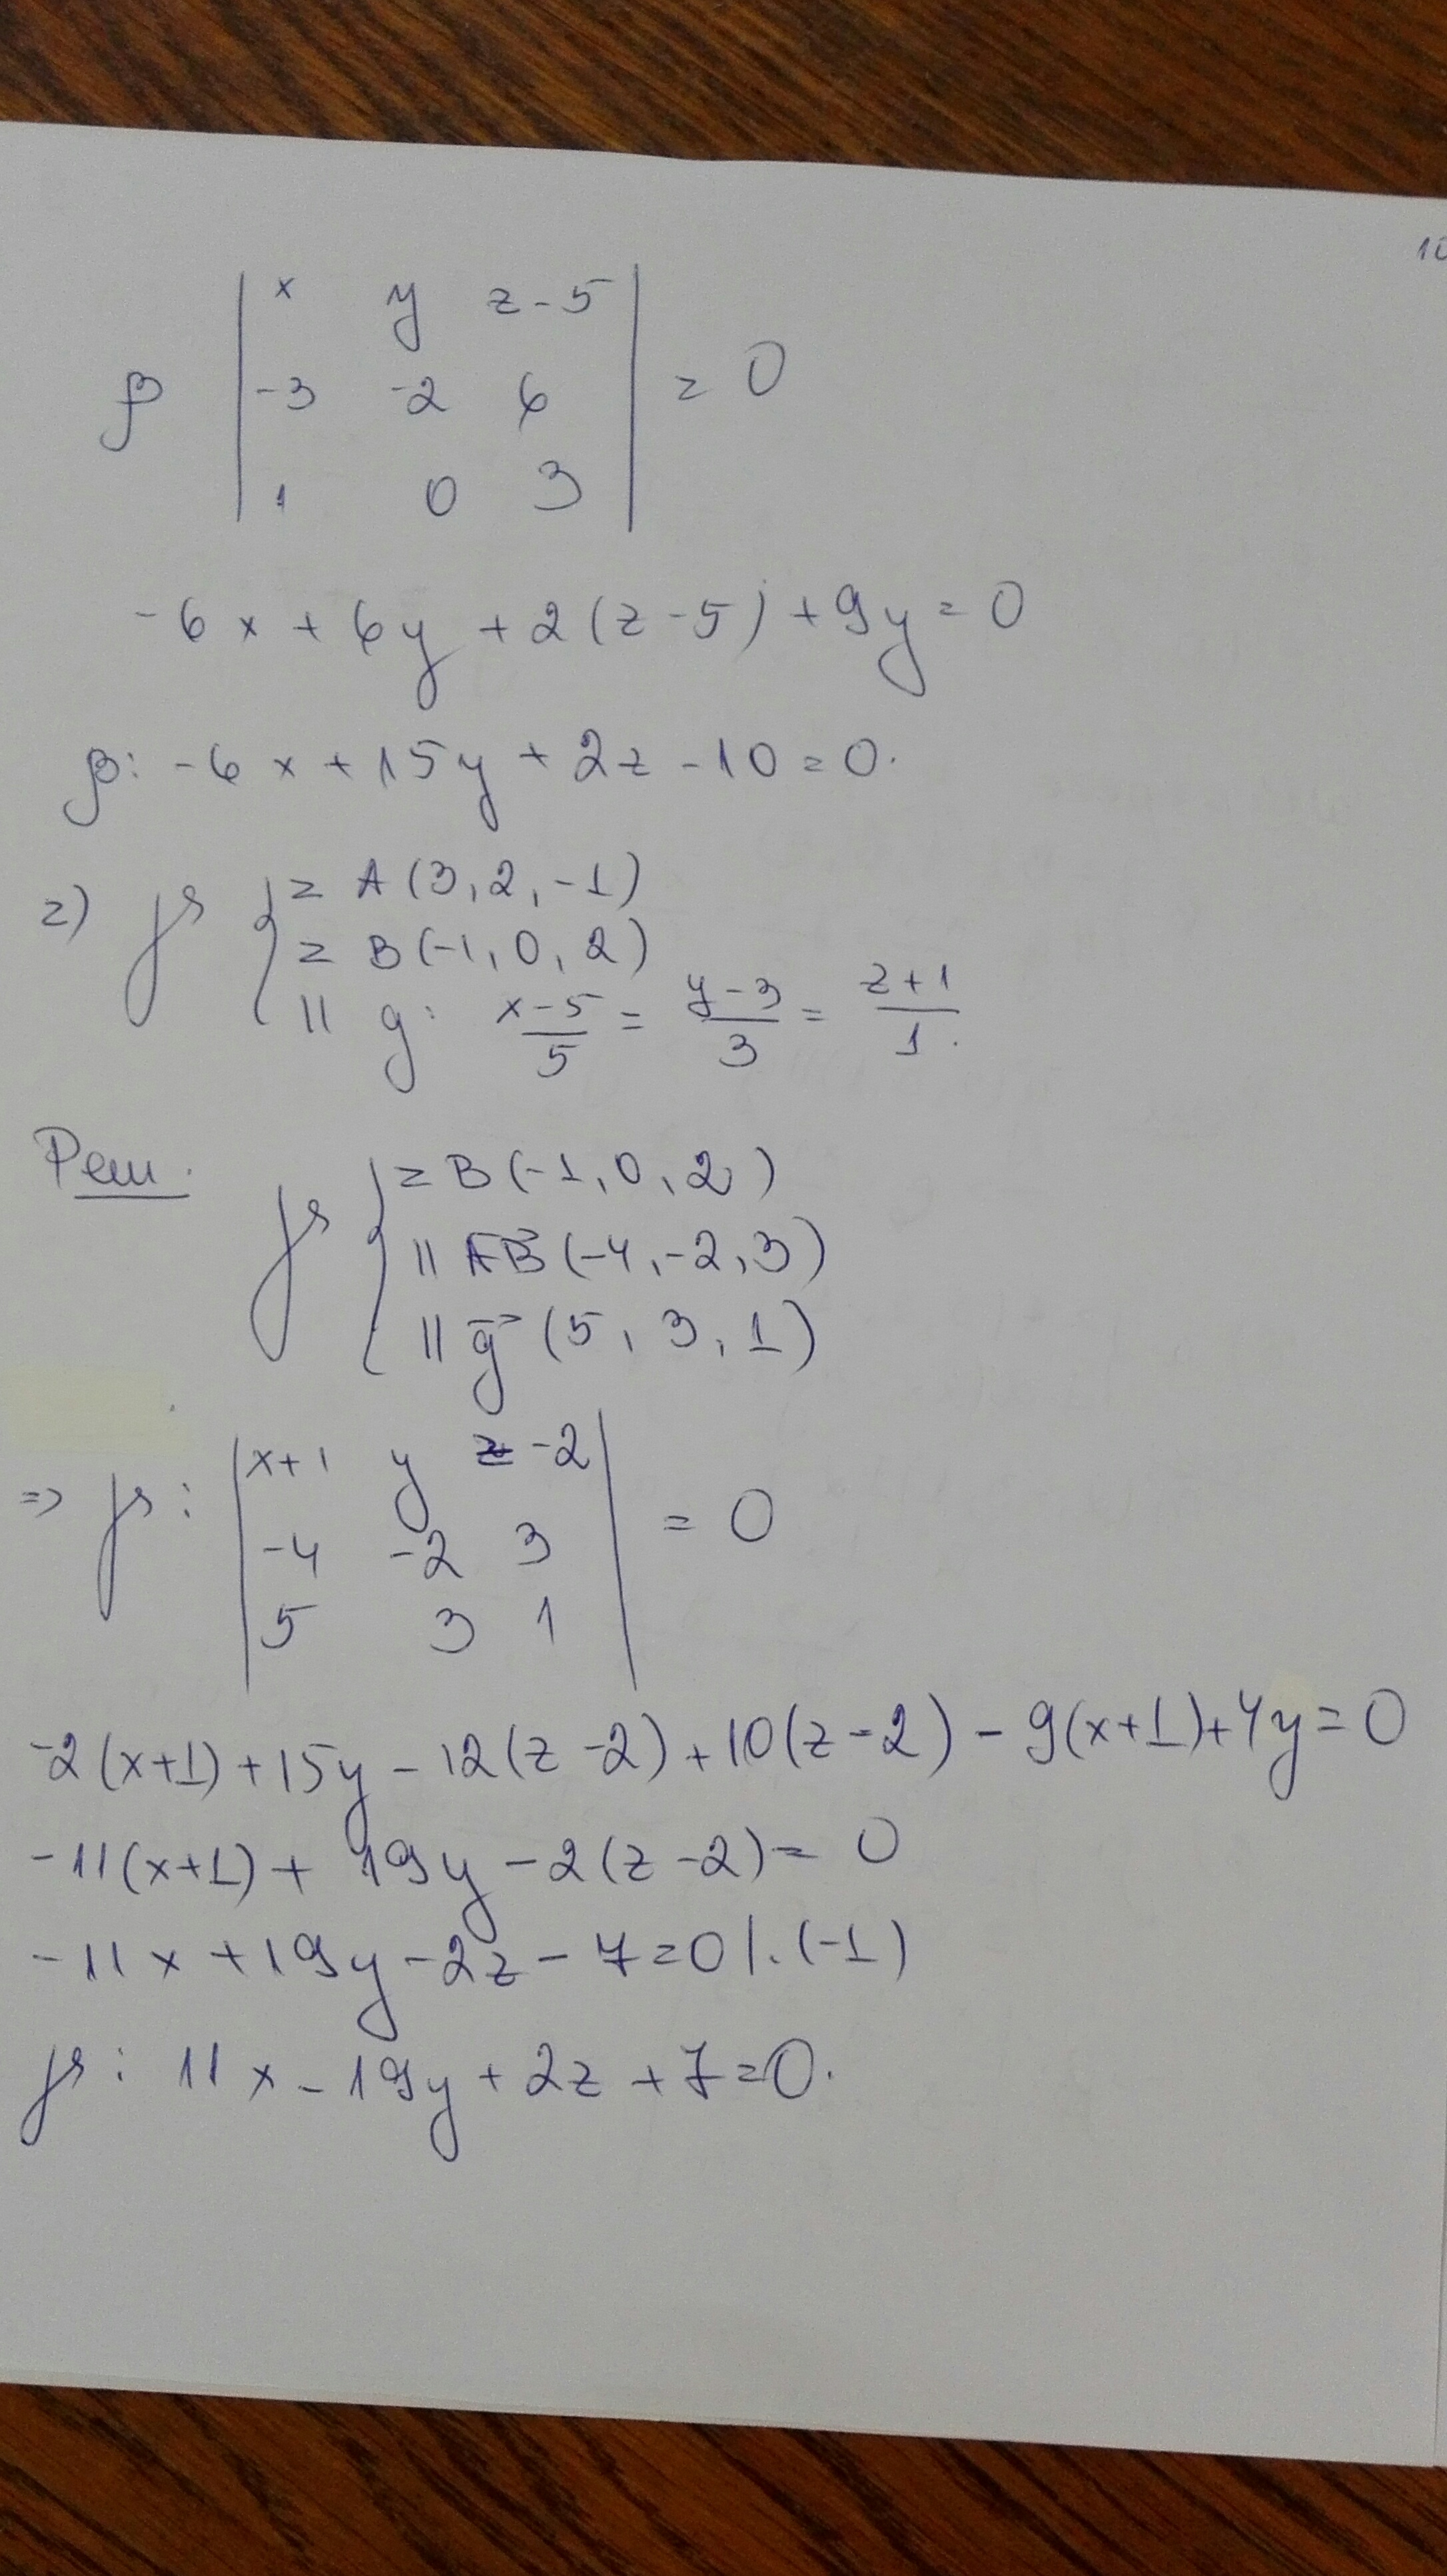 10
x y z-5
β -3 -2 6 = 0
1 0 3
-6x + 6y + 2(z-5) + 9y = 0
β: -6x + 15y + 2z - 10 = 0.
2) γ { z A(3, 2, -1)
z B(-1, 0, 2)
|| g: (x-5)/5 = (y-3)/3 = (z+1)/1.
Реш.
γ { z B(-1, 0, 2)
|| AB(-4, -2, 3)
|| g (5, 3, 1)
x+1 y z-2
=> γ: -4 -2 3 = 0
5 3 1
-2(x+1) + 15y - 12(z-2) + 10(z-2) - 9(x+1) + 4y = 0
-11(x+1) + 19y - 2(z-2) = 0
-11x + 19y - 2z - 7 = 0 |.(-1)
γ: 11x - 19y + 2z + 7 = 0.